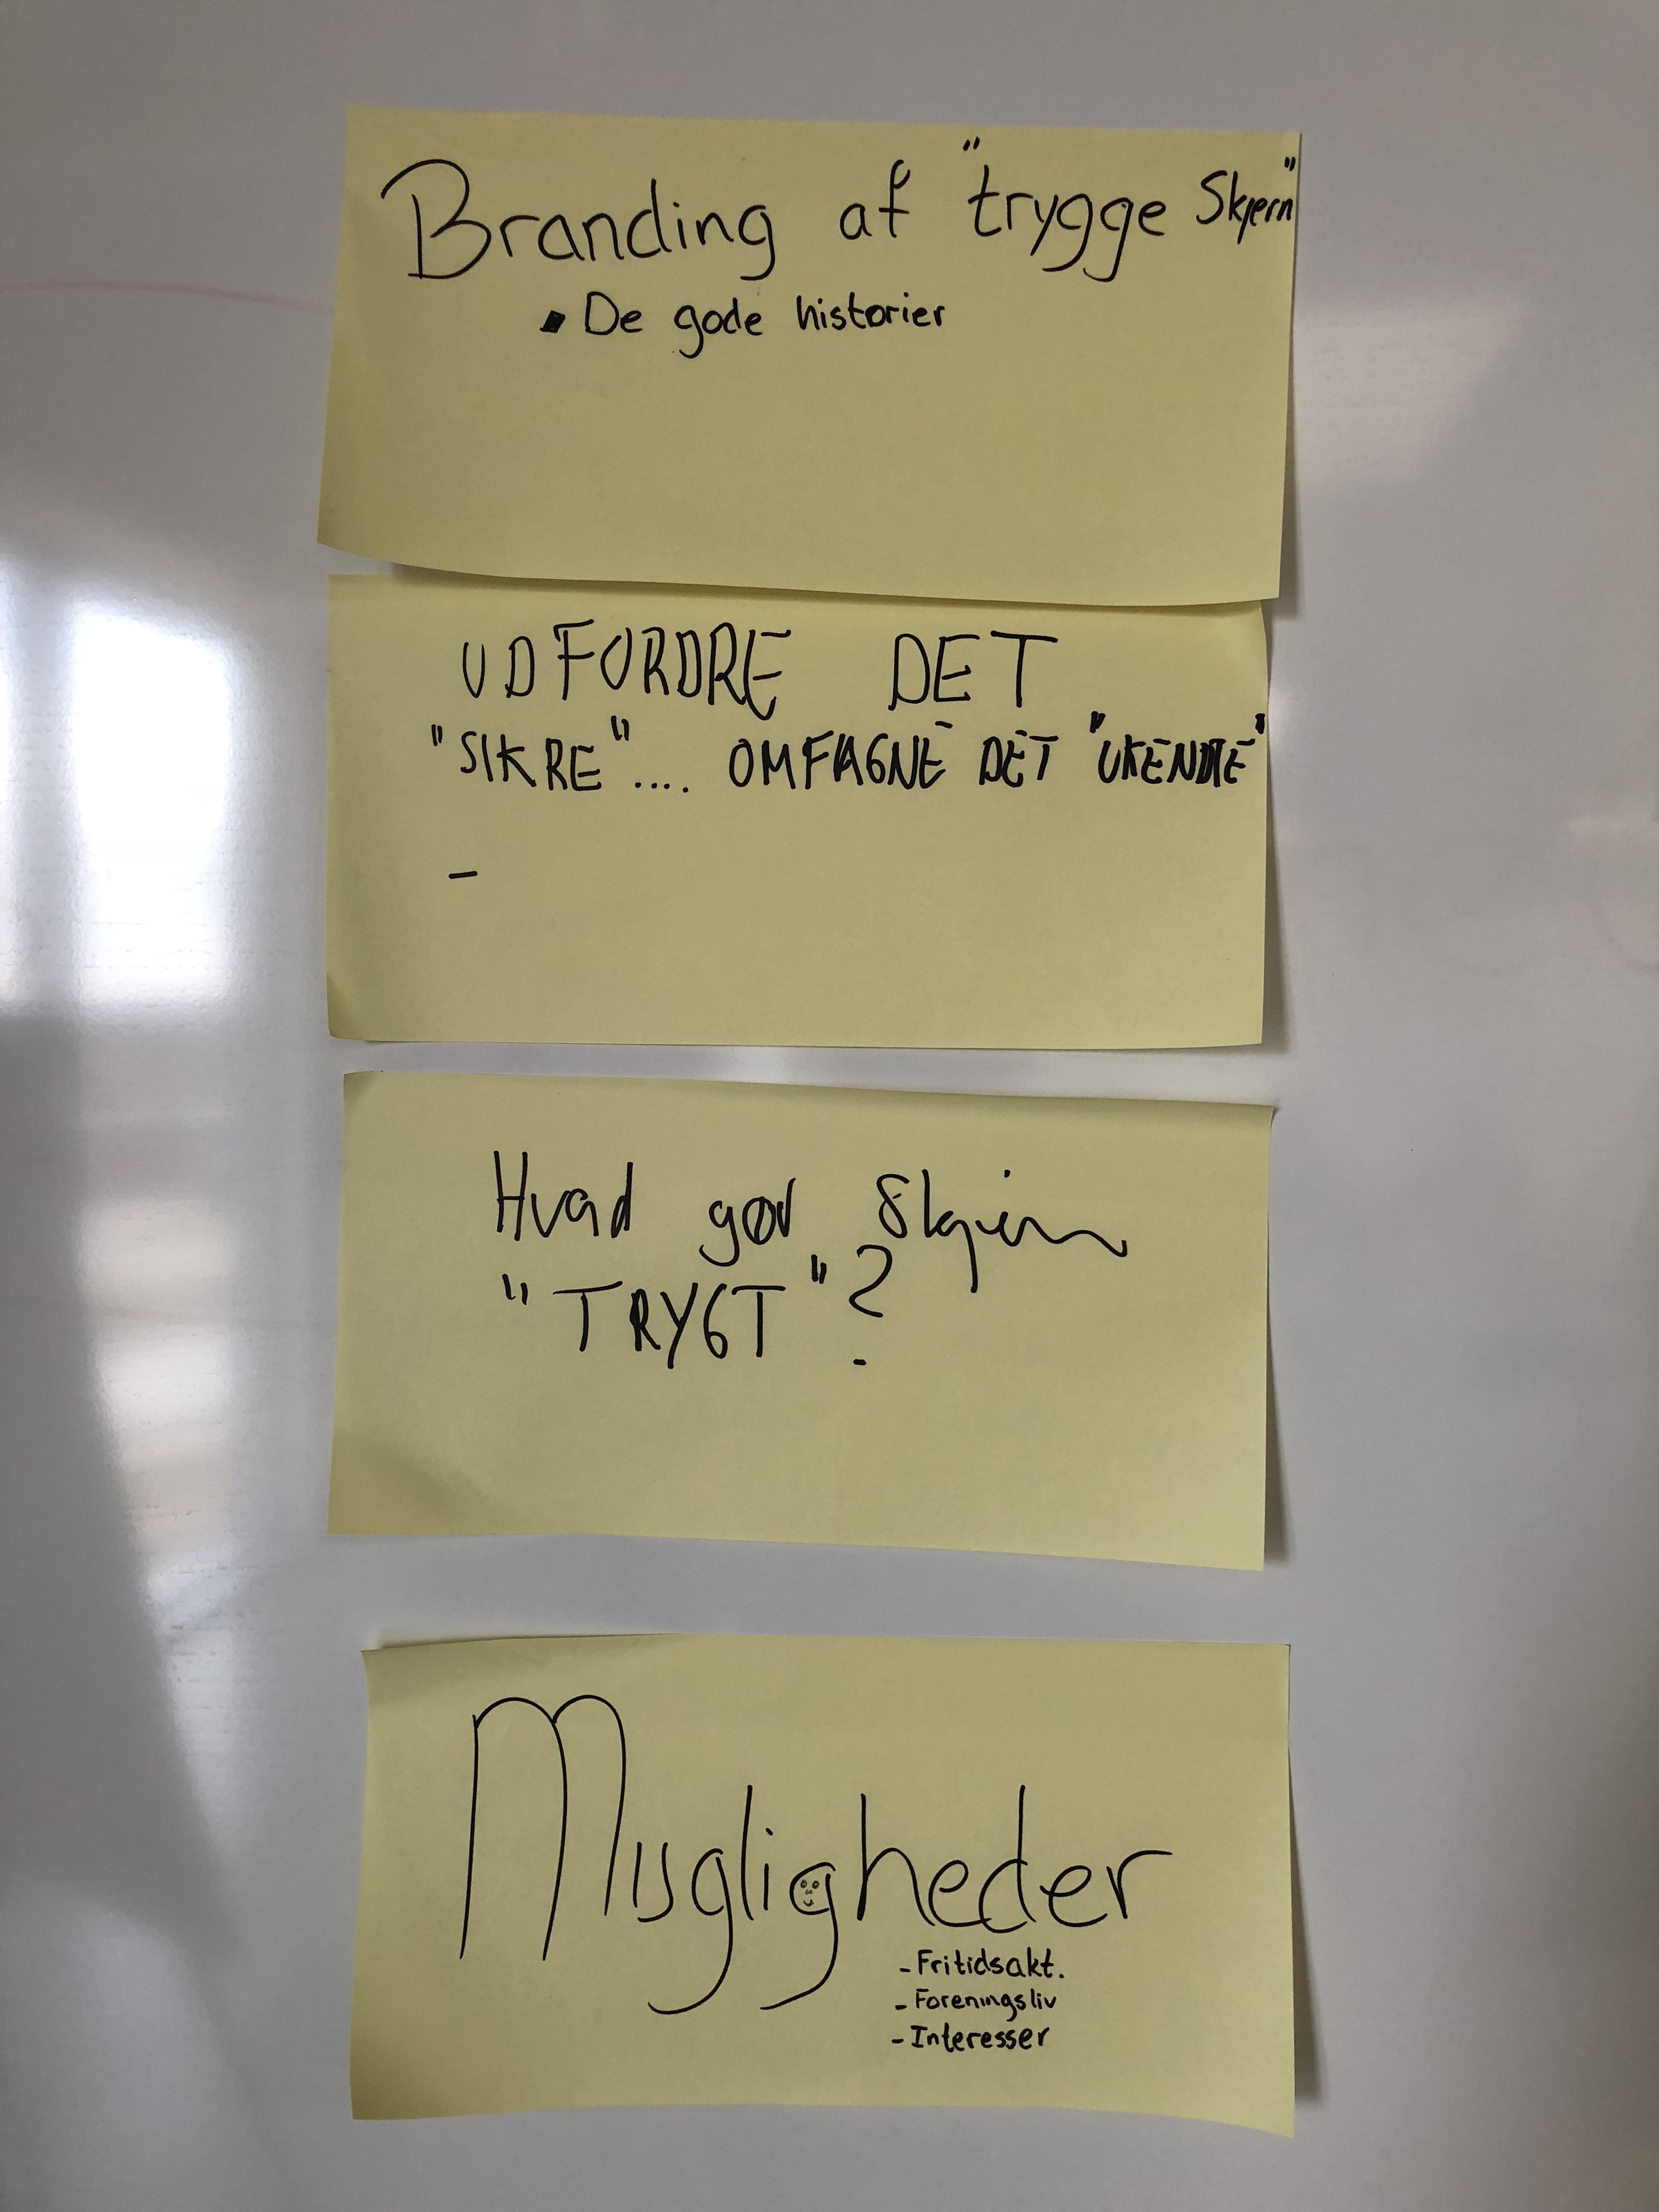 Branding af "trygge Skjern"
▪ De gode historier
UDFORDRE DET
"SIKRE".... OMFAGNE DET "UKENDTE"
–
Hvad gør Skjern
"TRYGT"?
Muligheder
- Fritidsakt.
- Foreningsliv
- Interesser